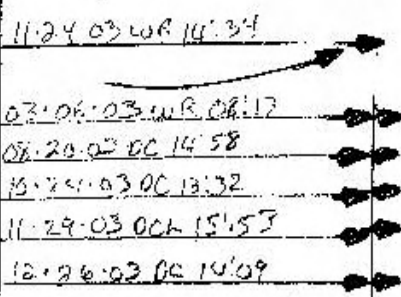 11·24 03 WR 14:34
03·06·03 WR 08:17
08·20·02 OC 14 58
10·24·03 OC 13:32
11·29·03 OCh 15:53
12·26·03 OC 14:09